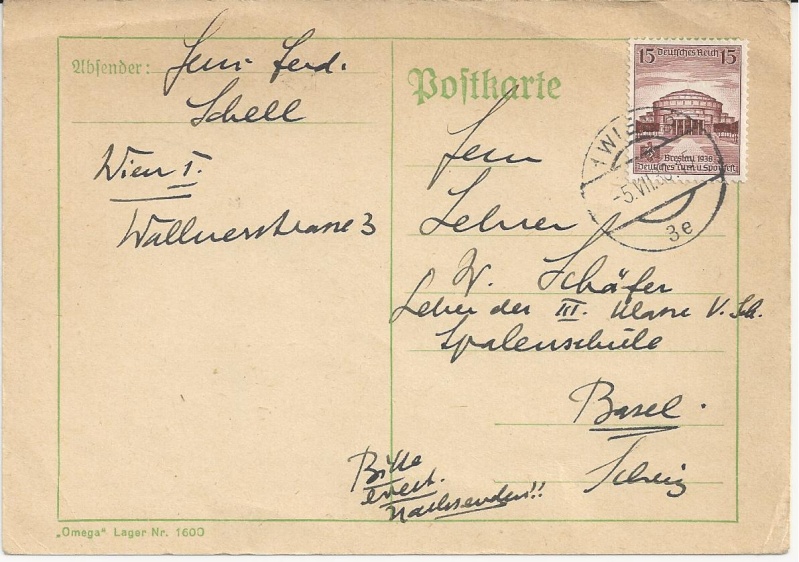 Absender: Herm. Ferd.
Schell
Wien I.
Wallnerstrasse 3
Postkarte
15 Deutsches Reich 15
Breslau 1938
Deutsches Turn u. Sportfest
1 WIEN
-5.VII.38
3e
Herrn
Lehrer
W. Schäfer
Lehrer der III. Klasse V. Sch.
Spalenschule
Basel.
Schweiz
Bitte
event.
nachsenden!!
„Omega" Lager Nr. 1600